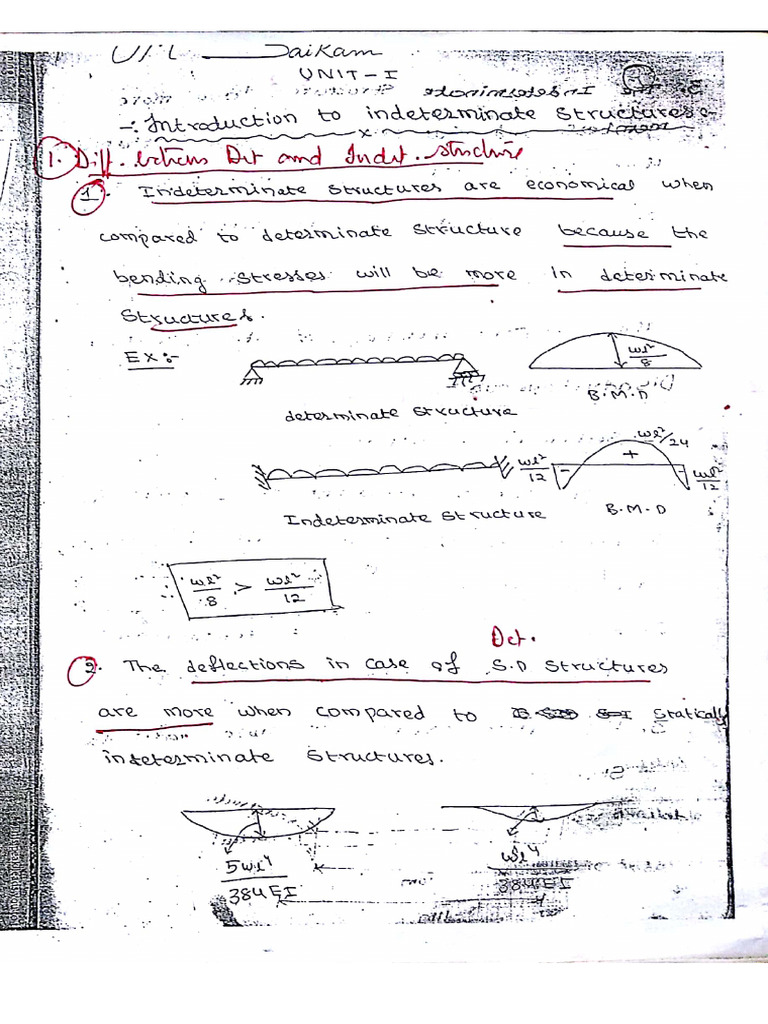 UNIT-I
-: Introduction to indeterminate structures:-
x
1. Diff. between Det and Indet. structure
1. Indeterminate structures are economical when
compared to determinate structure because the
bending stresses will be more in determinate
structures.
EX:-
wl²/8
B.M.D
determinate structure
wl²/12
wl²/24
+
-
-
wl²/12
Indeterminate structure
B.M.D
∴ wl²/8 > wl²/12
Det.
2. The deflections in case of S.D structures
are more when compared to statically
indeterminate structures.
5wl⁴/384EI
wl⁴/384EI